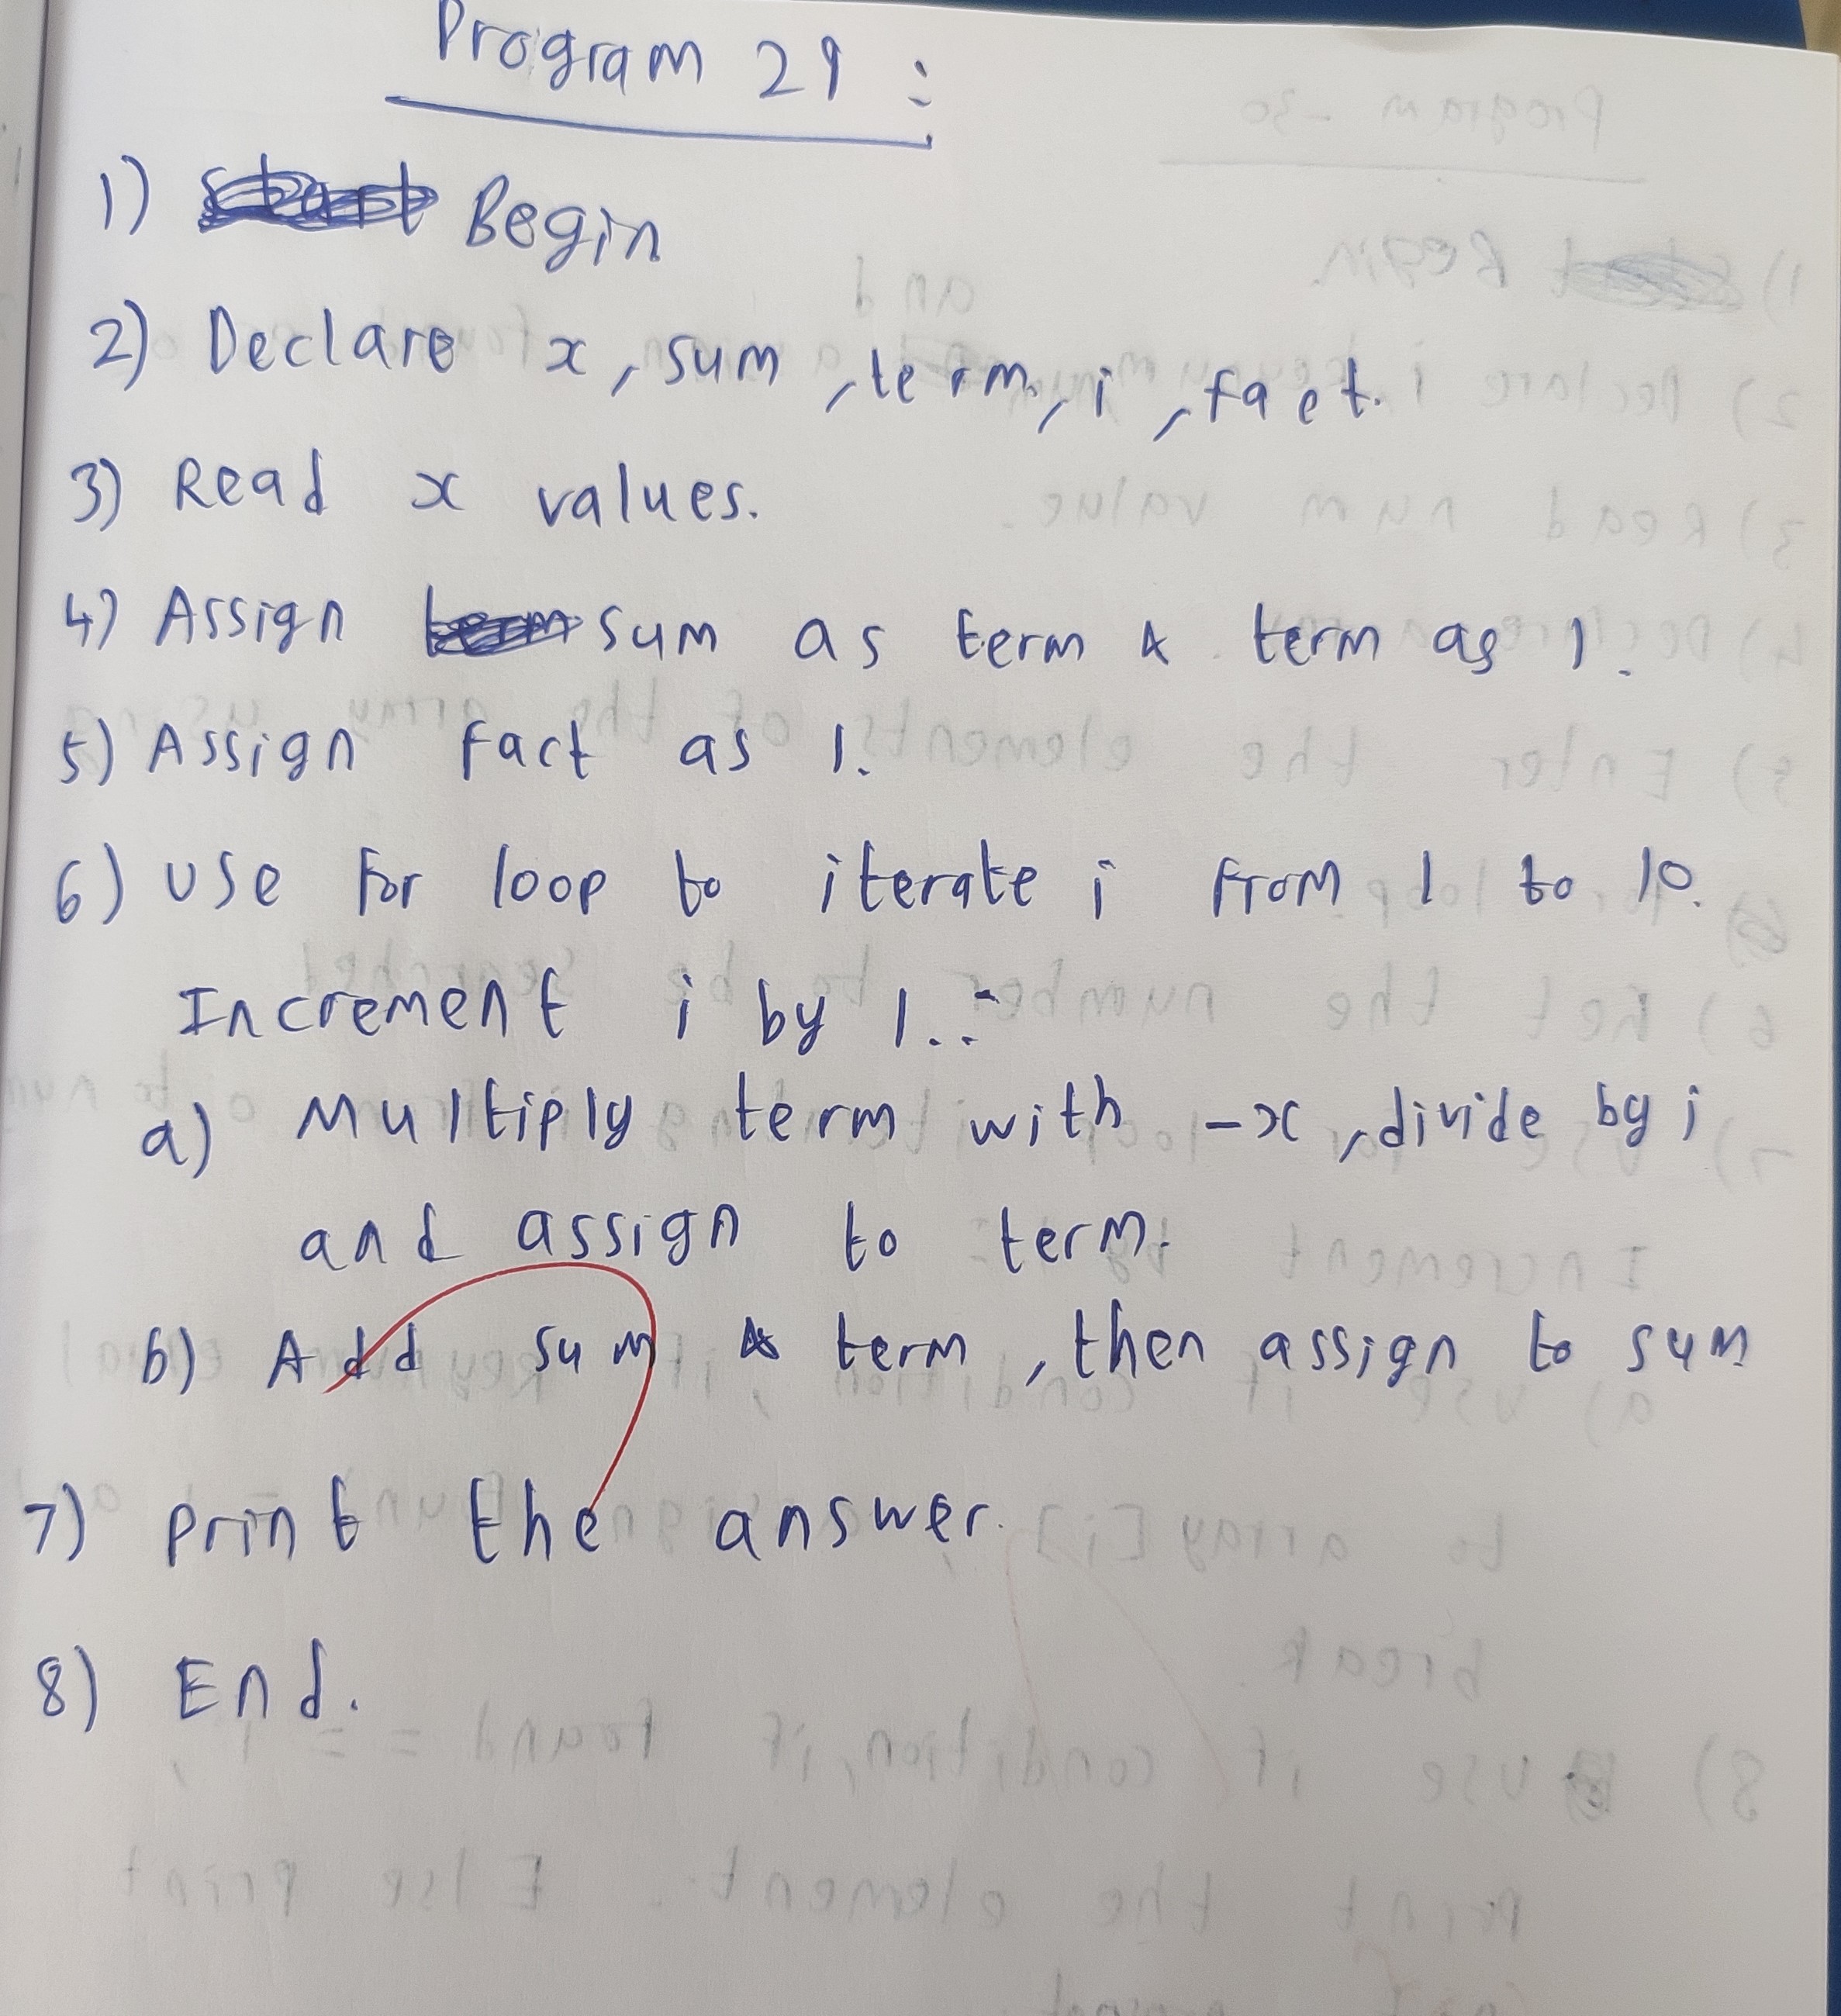 Program 29 :
1) Begin
2) Declare x, sum, term, i, fact.
3) Read x values.
4) Assign sum as term & term as 1.
5) Assign fact as 1.
6) Use for loop to iterate i from 1 to 10.
Increment i by 1. :-
a) Multiply term with -x, divide by i
and assign to term.
b) Add sum & term, then assign to sum
7) print the answer.
8) End.